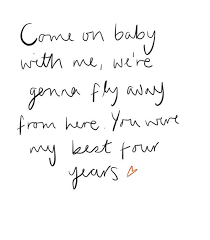 Come on baby
with me, we're
gonna fly away
from here. You were
my best four
years